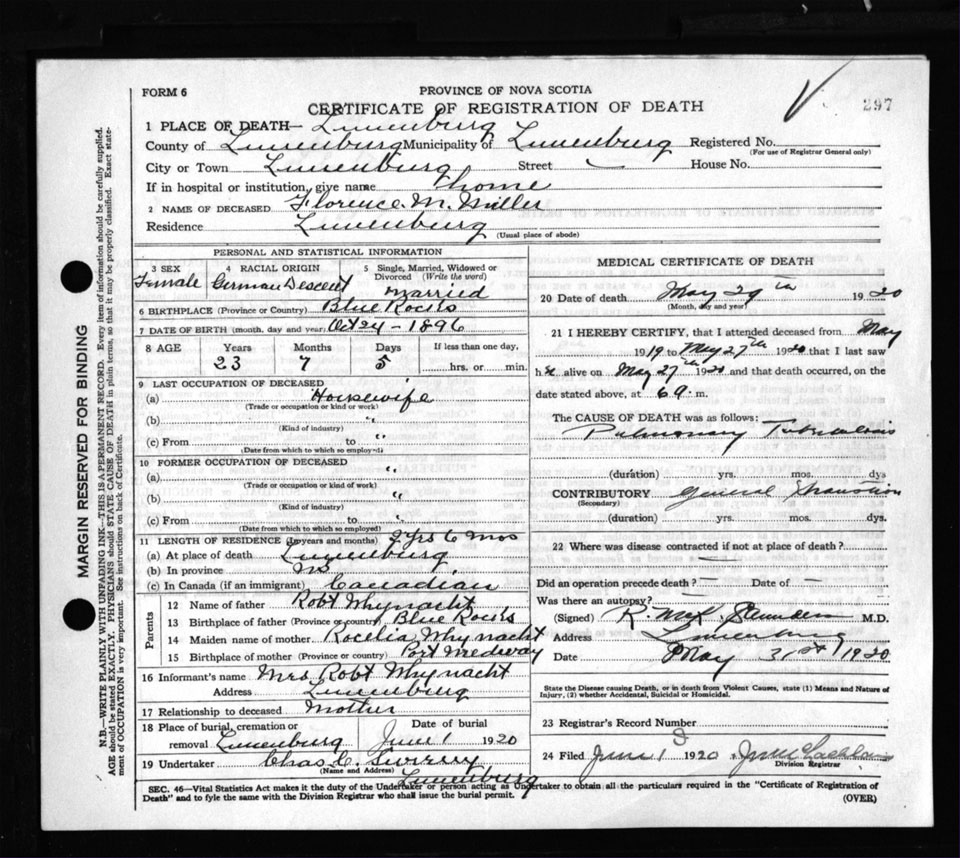 FORM 6
PROVINCE OF NOVA SCOTIA
297
CERTIFICATE OF REGISTRATION OF DEATH
1 PLACE OF DEATH— Lunenburg
County of Lunenburg Municipality of Lunenburg Registered No.
(For use of Registrar General only)
City or Town Lunenburg Street — House No.
If in hospital or institution, give name home
2 NAME OF DECEASED Florence. M. Miller
Residence Lunenburg
(Usual place of abode)
PERSONAL AND STATISTICAL INFORMATION
3 SEX 4 RACIAL ORIGIN 5 Single, Married, Widowed or Divorced (Write the word)
Female German Descent married
6 BIRTHPLACE (Province or Country) Blue Rocks
7 DATE OF BIRTH (month, day and year) Oct 24 - 1896
8 AGE Years Months Days If less than one day,
23 7 5 hrs. or min.
9 LAST OCCUPATION OF DECEASED
(a) Housewife
(Trade or occupation or kind or work)
(b) "
(Kind of industry)
(c) From to "
(Date from which to which so employed)
10 FORMER OCCUPATION OF DECEASED
(a) "
(Trade or occupation or kind of work)
(b) "
(Kind of industry)
(c) From to "
(Date from which to which so employed)
11 LENGTH OF RESIDENCE (In years and months) 2 yrs 6 mos
(a) At place of death Lunenburg
(b) In province
(c) In Canada (if an immigrant) Canadian
Parents
12 Name of father Robt Whynacht
13 Birthplace of father (Province or country) Blue Rocks
14 Maiden name of mother Rocelia Whynacht
15 Birthplace of mother (Province or country) Port Medway
16 Informant's name Mrs Robt Whynacht
Address Lunenburg
17 Relationship to deceased Mother
18 Place of burial, cremation or removal Lunenburg Date of burial June 1 1920
19 Undertaker Chas C.
(Name and Address) Lunenburg
MEDICAL CERTIFICATE OF DEATH
20 Date of death May 29th 1920
(Month, day and year)
21 I HEREBY CERTIFY, that I attended deceased from May
1919 to May 27th 1920 that I last saw
her alive on May 27th 1920 and that death occurred, on the
date stated above, at 6 a. m.
The CAUSE OF DEATH was as follows:
Pulmonary Tuberculosis
(duration) yrs. mos. dys
CONTRIBUTORY General Exhaustion
(Secondary)
(duration) yrs. mos. dys.
22 Where was disease contracted if not at place of death? —
Did an operation precede death? — Date of —
Was there an autopsy? —
(Signed) R. McK. Saunders M.D.
Address Lunenburg
Date May 31st 1920
State the Disease causing Death, or in death from Violent Causes, state (1) Means and Nature of
Injury, (2) whether Accidental, Suicidal or Homicidal.
23 Registrar's Record Number
24 Filed June 1 1920
Division Registrar
SEC. 46—Vital Statistics Act makes it the duty of the Undertaker or person acting as Undertaker to obtain all the particulars required in the "Certificate of Registration of
Death" and to fyle the same with the Division Registrar who shall issue the burial permit.
(OVER)
MARGIN RESERVED FOR BINDING
N.B.—WRITE PLAINLY WITH UNFADING INK—THIS IS A PERMANENT RECORD. Every item of information should be carefully supplied.
AGE should be stated EXACTLY. PHYSICIANS should STATE CAUSE OF DEATH in plain terms, so that it may be properly classified. Exact statement of OCCUPATION is very important. See instructions on back of Certificate.